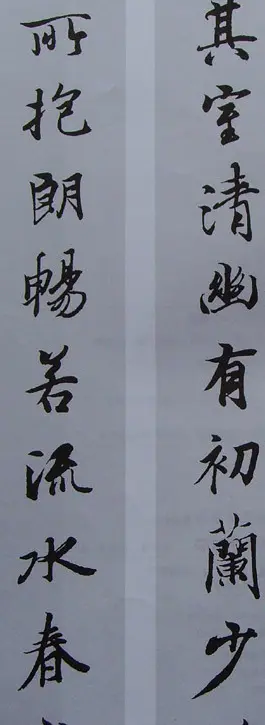 其室清幽有初蘭少
所抱朗暢若流水春